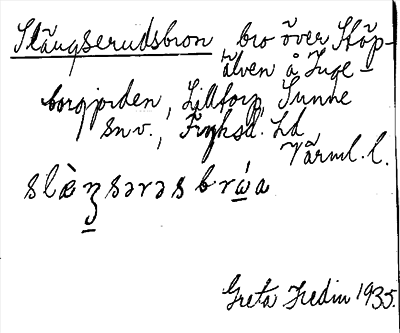 Slängserudsbron bro över Stöp-
älven å Inge-
borgjorden, Lilltorp, Sunne
sn v., Fryksd. hd
Värml. l.
slæ̀ŋsərəsbrẃa
Greta Fredin 1935.